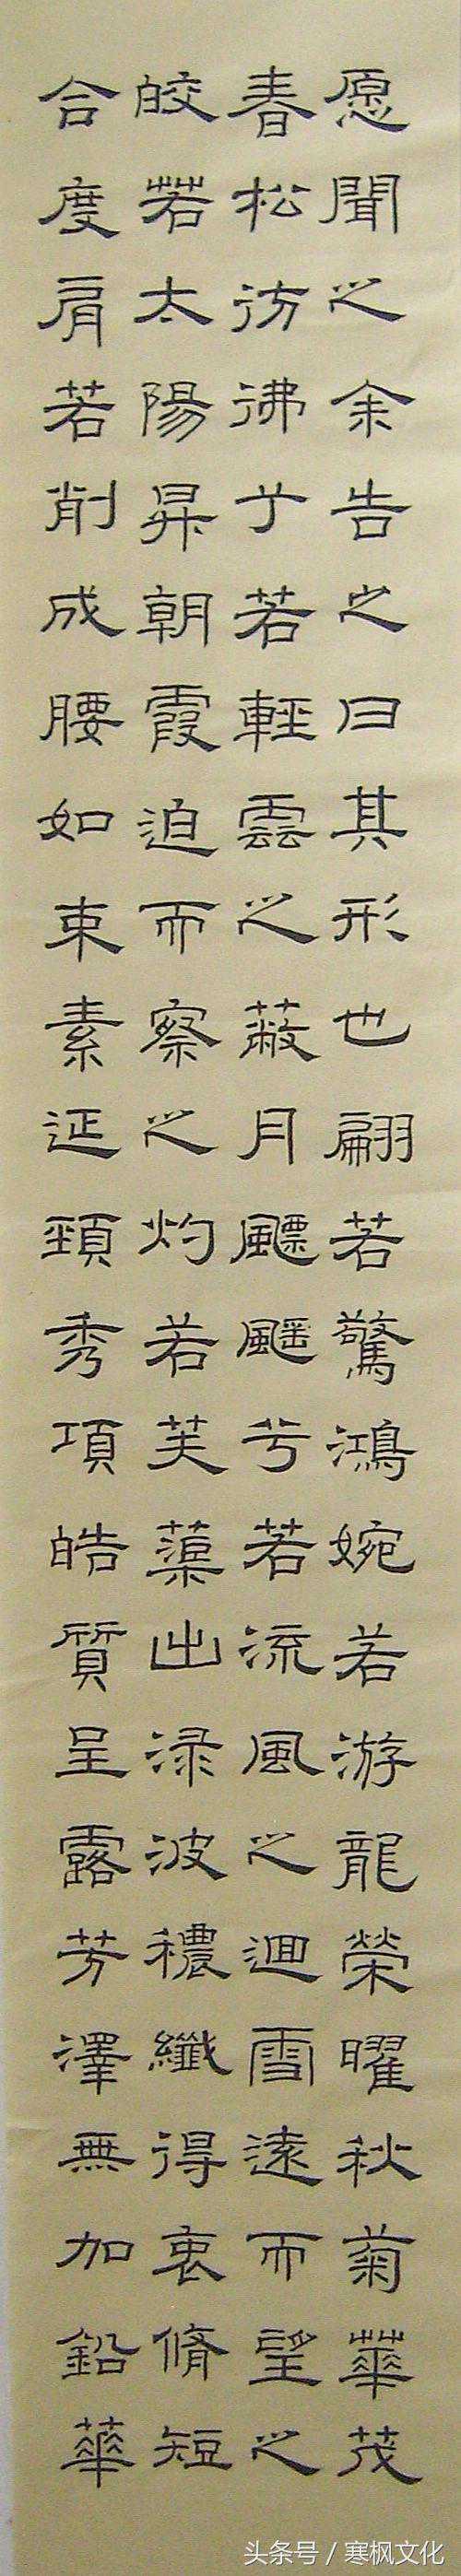 愿聞之余告之曰其形也翩若驚鴻婉若游龍榮曜秋菊華茂
春松彷彿兮若輕雲之蔽月飄颻兮若流風之迴雪遠而望之
皎若太陽昇朝霞迫而察之灼若芙蕖出渌波穠纖得衷脩短
合度肩若削成腰如束素延頸秀項皓質呈露芳澤無加鉛華
头条号/寒枫文化